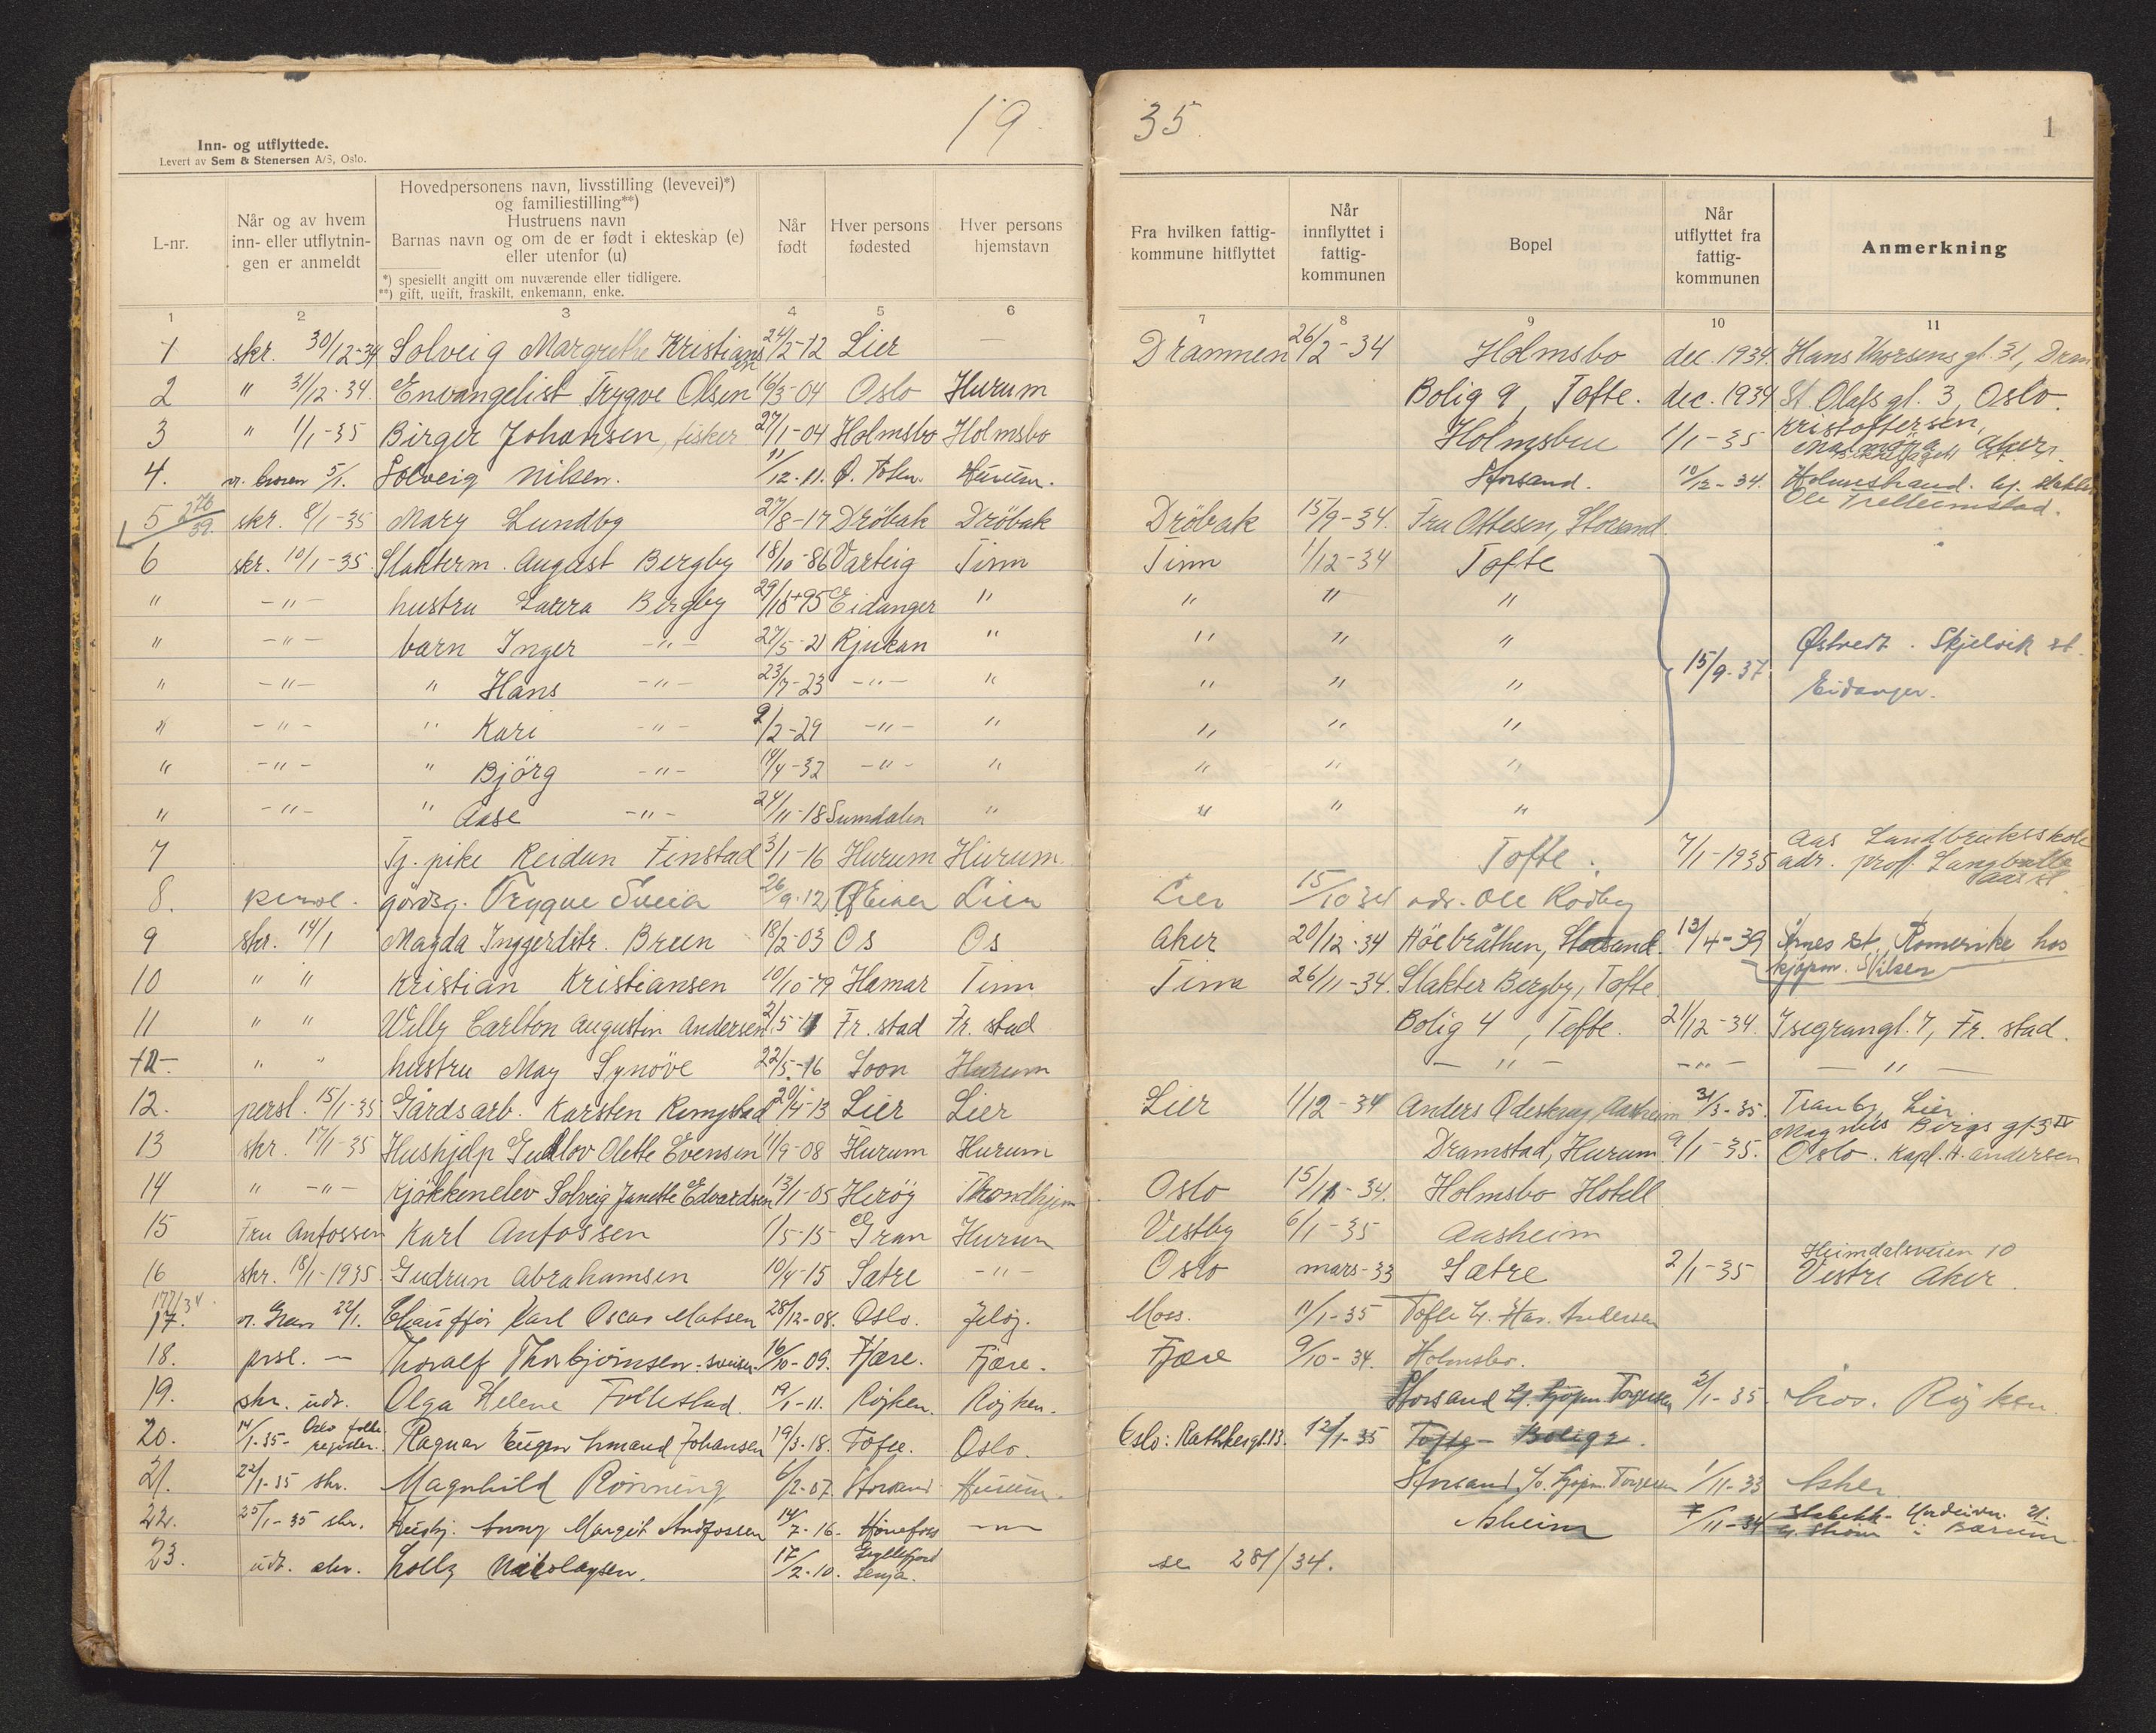 19
35
1
Inn- og utflyttede.
Levert av Sem & Stenersen A/S, Oslo.
L-nr.
Når og av hvem
inn- eller utflytnin-
gen er anmeldt
Hovedpersonens navn, livsstilling (levevei)*)
og familiestilling**)
Hustruens navn
Barnas navn og om de er født i ekteskap (e)
eller utenfor (u)
*) spesiellt angitt om nuværende eller tidligere.
**) gift, ugift, fraskilt, enkemann, enke.
Når
født
Hver persons
fødested
Hver persons
hjemstavn
Fra hvilken fattig-
kommune hitflyttet
Når
innflyttet i
fattig-
kommunen
Bopel
Når
utflyttet fra
fattig-
kommunen
Anmerkning
1 2 3 4 5 6 7 8 9 10 11
1 skr. 30/12-34 Solveig Margrethe Kristiansen 24/2-12 Lier — Drammen 26/2-34 Holmsbo dec. 1934. Hans Thorsens gt. 31, Dram
2 " 31/12-34. Envangelist Trygve Olsen 16/3-04 Oslo Hurum Bolig 9, Tofte. dec. 1934 St. Olafs gt. 3, Oslo.
3 " 1/1-35 Birger Johansen, fisker 27/1-04 Holmsbo Holmsbo Holmsbu 1/1-35 Kristoffersen, Aker
4. 5/1. Solveig Nilsen. 11/12-11. Ø. Toten. Hurum. Storsand. 10/12-34. Holmestrand.
Ole Trelleimstad.
5 276/39. skr. 8/1-35 Mary Lundby 27/8-17 Dröbak Dröbak Dröbak 15/9-34. Fru Ottesen, Storsand.
6 skr. 10/1-35. Slakterm. August Bergby 18/10-86 Varteig Tinn Tinn 1/12-34 Tofte
" -"- hustru Laura Bergby 29/10-95 Eidanger " " " "
" -"- barn Inger -"- 27/5-21 Rjukan " " " " Østvedt. Skjelvik st.
" -"- " Hans -"- 23/7-23 -"- " " " " 15/9-37. Eidanger.
" -"- " Kari -"- 9/2-29 -"- " " " "
" -"- " Björg -"- 14/4-32 -"- " " " "
" -"- " Aase -"- 24/11-18 Sumdalen " " " "
7 Tj. pike Reidun Finstad 3/1-16 Hurum Hurum. Tofte. 7/1-1935 Aas Landbruksskole
adr. prof. Langballe
Aas st.
8. persl. gårdsg. Trygve Sveia 26/9-12 Lier Lier 15/10 34 adr. Ole Rödby
9 skr. 14/1 Magda Inggerdtr. Breen 18/2-03 Os Os Aker 20/12-34 Höebråthen, Storsand. 13/4-39 Årnes st. Romerike hos
kjøpm. Nilsen
10 " " Kristian Kristiansen 10/10-79 Hamar Tinn Tinn 26/11-34. Slakter Bergby, Tofte.
11 " " Willy Carlton Augustin Andersen 2/5-11 Fr. stad Fr. stad Bolig 4, Tofte. 21/12-34. Isegrangt. 7, Fr. stad.
" " hustru May Synöve 22/5-16 Soon Hurum -"- -"- -"-
12. persl. 15/1-35 Gårdsarb. Karsten Ringstad 20/4-13 Lier Lier Lier 1/12-34 Anders Odeskaug, Aasheim 31/3-35. Tranby, Lier
13 skr. 17/1-35 Hushjelp Gudlov Olette Evensen 11/9-08 Hurum Hurum Dramstad, Hurum 9/1-35. Magnus Bergs gt. 3 IV
Oslo. Kapt. A. Andersen
14 " -"- Kjökkenelev Solveig Janette Edvardsen 13/1-05 Heröy Trondhjem Oslo 15/11-34. Holmsbo Hotell
15 Fru Anfossen Karl Anfossen 1/5-15 Gran Hurum Vestby 6/1-35 Aasheim
16 skr. 18/1-1935. Gudrun Abrahamsen 10/4-15 Sætre -"- Oslo mars-33 Sætre 2/1-35 Heimdalsveien 10
Vestre Aker.
177/34.
17. 22/1. Chauffør Karl Oscar Matsen 28/12-08. Oslo. Jeløj. Moss. 11/1-35 Tofte Andersen
18. prsl. — Thoralf Thorbjørnsen - sveiser 16/10-09. Fjære. Fjære. Fjære 9/10-34. Holmsbo.
19. skr. udt. Olga Helene Follestad. 19/1-11. Røjken. Røjken. Storsand kjøpm. Torgersen 2/1-35. Røjken.
20. 14/1-35- Oslo folke
register. Ragnar Eugen Johansen 19/3-18. Tofte. Oslo. Oslo: Rathkesgt. 13. 12/1-35 Tofte - Bolig 2.
21. 22/1-35 skr. Magnhild Rønning 6/2-07. Storsand Hurum. Storsand, c/o. kjøpm. Torgersen 1/11-33 Asker
22. 25/1-35 skr. Hushj. Margit Andfossen 14/7-16- Hønefoss -"- Asheim 7/11-34 Stabekk i Bærum
23. udt. skr. Lolly Nikolaysen. 17/2-10. Gryllefjord
Senja. se 281/34.